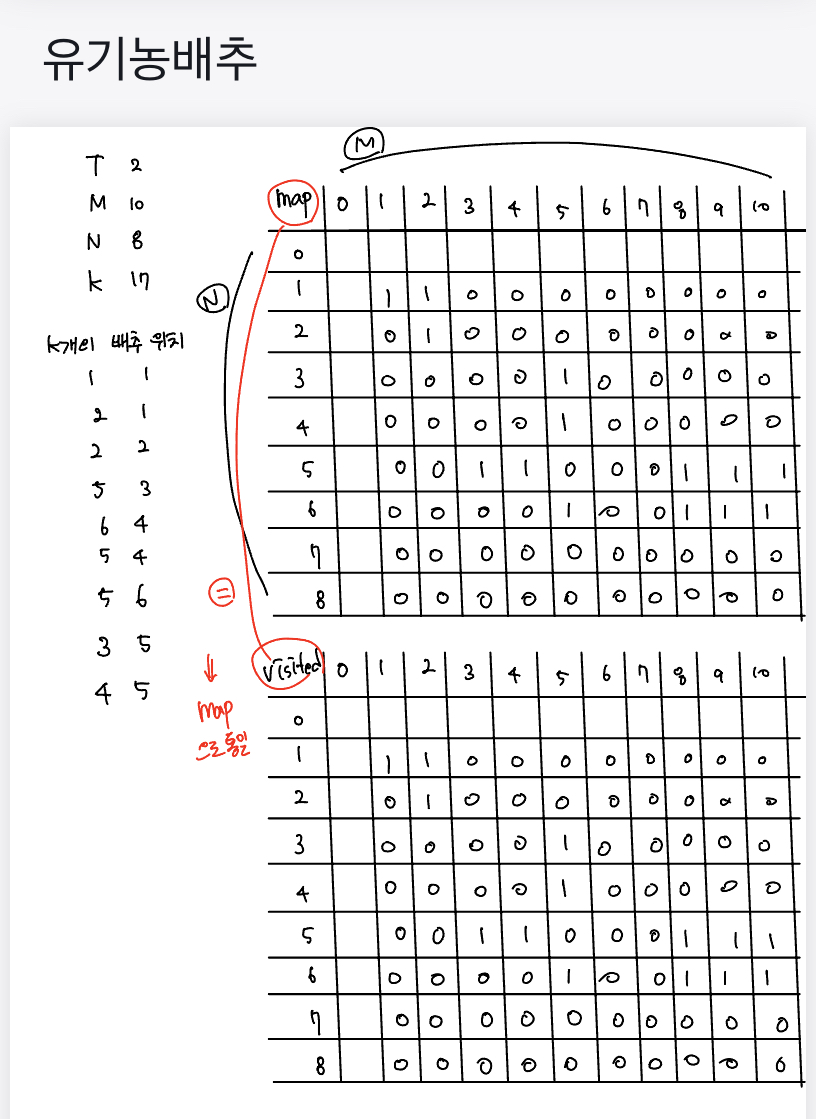 유기농배추
T 2
M 10
N 8
K 17
K개의 배추 위치
1 1
2 1
2 2
5 3
6 4
5 4
5 6
3 5
4 5
M
N
map 0 1 2 3 4 5 6 7 8 9 10
0
1 1 1 0 0 0 0 0 0 0 0
2 0 1 0 0 0 0 0 0 0 0
3 0 0 0 0 1 0 0 0 0 0
4 0 0 0 0 1 0 0 0 0 0
5 0 0 1 1 0 0 0 1 1 1
6 0 0 0 0 1 0 0 1 1 1
7 0 0 0 0 0 0 0 0 0 0
8 0 0 0 0 0 0 0 0 0 0
=
↓
map
으로 통일
visited 0 1 2 3 4 5 6 7 8 9 10
0
1 1 1 0 0 0 0 0 0 0 0
2 0 1 0 0 0 0 0 0 0 0
3 0 0 0 0 1 0 0 0 0 0
4 0 0 0 0 1 0 0 0 0 0
5 0 0 1 1 0 0 0 1 1 1
6 0 0 0 0 1 0 0 1 1 1
7 0 0 0 0 0 0 0 0 0 0
8 0 0 0 0 0 0 0 0 0 0